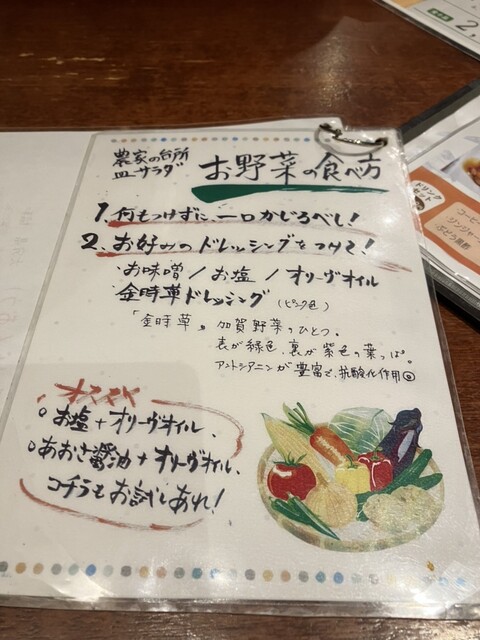 農家の台所
皿サラダ
お野菜の食べ方
1. 何もつけずに、一口かじるべし!
2. お好みのドレッシングをつけて!
・お味噌/お塩/オリーヴオイル
金時草ドレッシング(ピンク色)
「金時草」加賀野菜のひとつ。
表が緑色、裏が紫色の葉っぱ。
アントシアニンが豊富で、抗酸化作用◎
オススメ
○お塩+オリーヴオイル、
○あおさ醤油+オリーヴオイル、
コチラもお試しあれ!
ドリンク
コーヒー
ジンジャー
ぶどう黒酢
2,